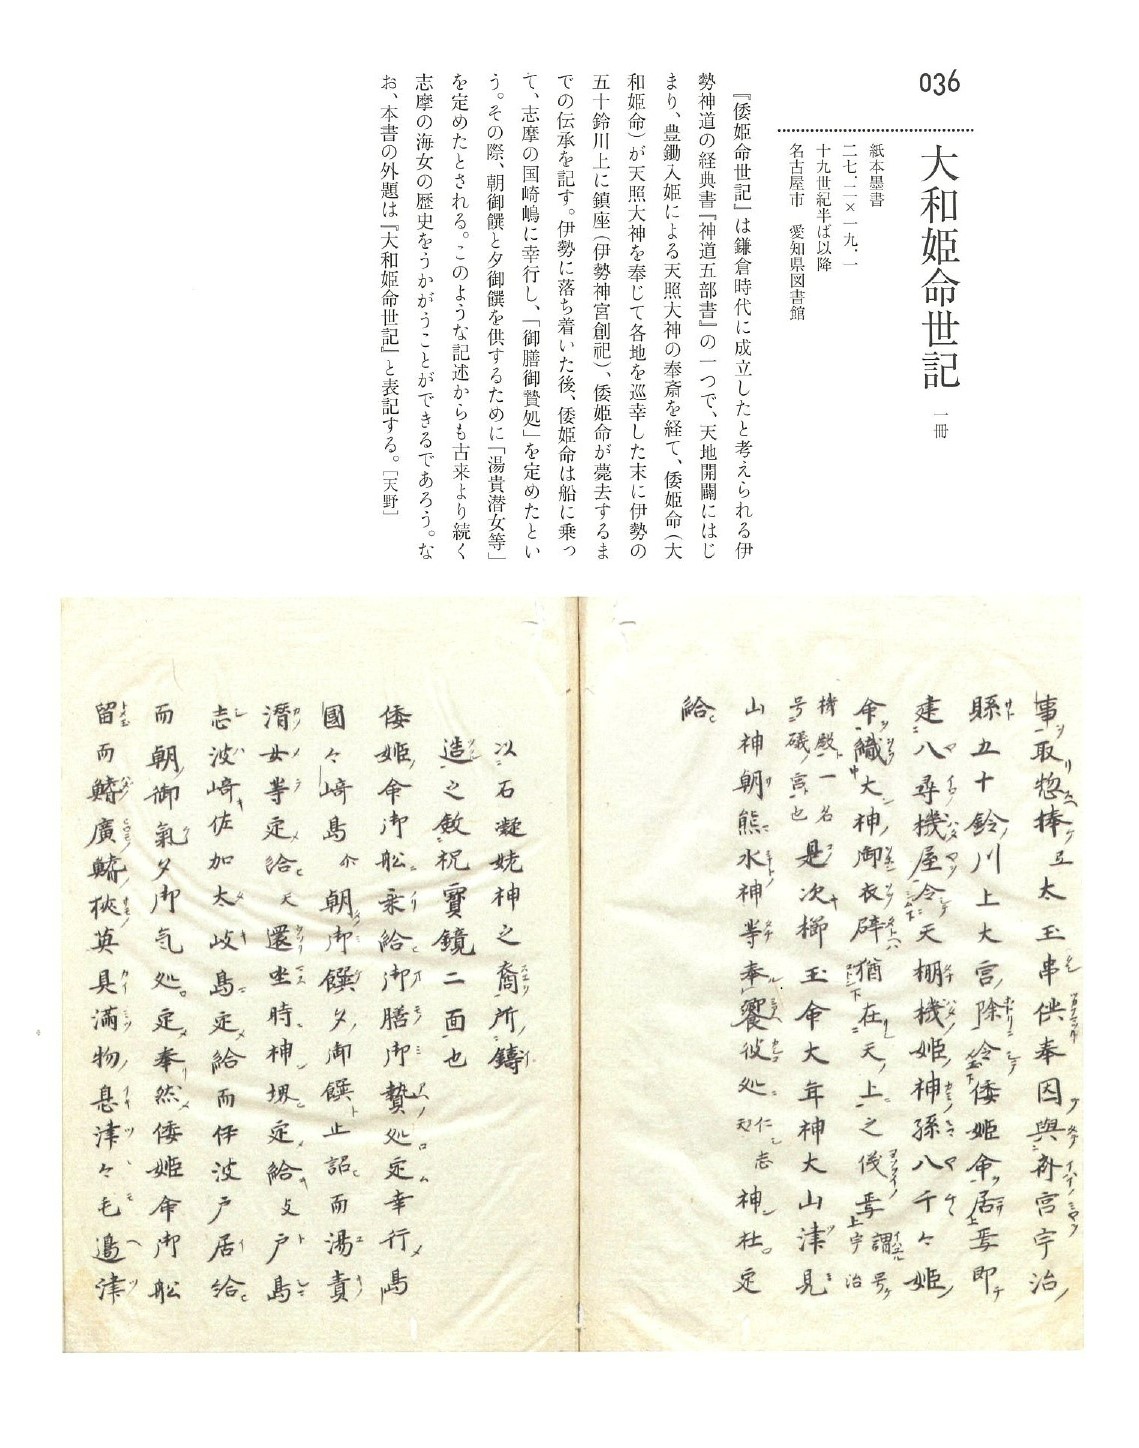 036
大和姫命世記 一冊
紙本墨書
二七.二×一九.一
十九世紀半ば以降
名古屋市 愛知県図書館
『倭姫命世記』は鎌倉時代に成立したと考えられる伊
勢神道の経典書『神道五部書』の一つで、天地開闢にはじ
まり、豊鋤入姫による天照大神の奉斎を経て、倭姫命(大
和姫命)が天照大神を奉じて各地を巡幸した末に伊勢の
五十鈴川上に鎮座(伊勢神宮創祀)、倭姫命が薨去するま
での伝承を記す。伊勢に落ち着いた後、倭姫命は船に乗っ
て、志摩の国崎嶋に幸行し、「御膳御贄処」を定めたとい
う。その際、朝御饌と夕御饌を供するために「湯貴潜女等」
を定めたとされる。このような記述からも古来より続く
志摩の海女の歴史をうかがうことができるであろう。な
お、本書の外題は『大和姫命世記』と表記する。[天野]
事取惣捧太玉串供奉因與斎宮宇治
縣五十鈴川上大宮際令倭姫命居焉即
建八尋機屋令天棚機姫神孫八千々姫
命織大神御衣辟猶在天上之儀焉謂号宇治
機殿一名号礒宮也是次櫛玉命大年神大山津見
山神朝熊水神等奉饗彼処神社定
給
以石凝姥神之裔所鋳
造之 祝寶鏡二面也
倭姫命御船乗給御膳御贄処定幸行島
國々崎島朝御饌夕御饌止詔而湯貴
潜女等定給還坐時神堺定給戸島
志波崎佐加太岐島定給而伊波戸居給
而朝御氣夕御気処定奉然倭姫命御船
留而鰭廣鰭狭英具満物息津々毛邉津